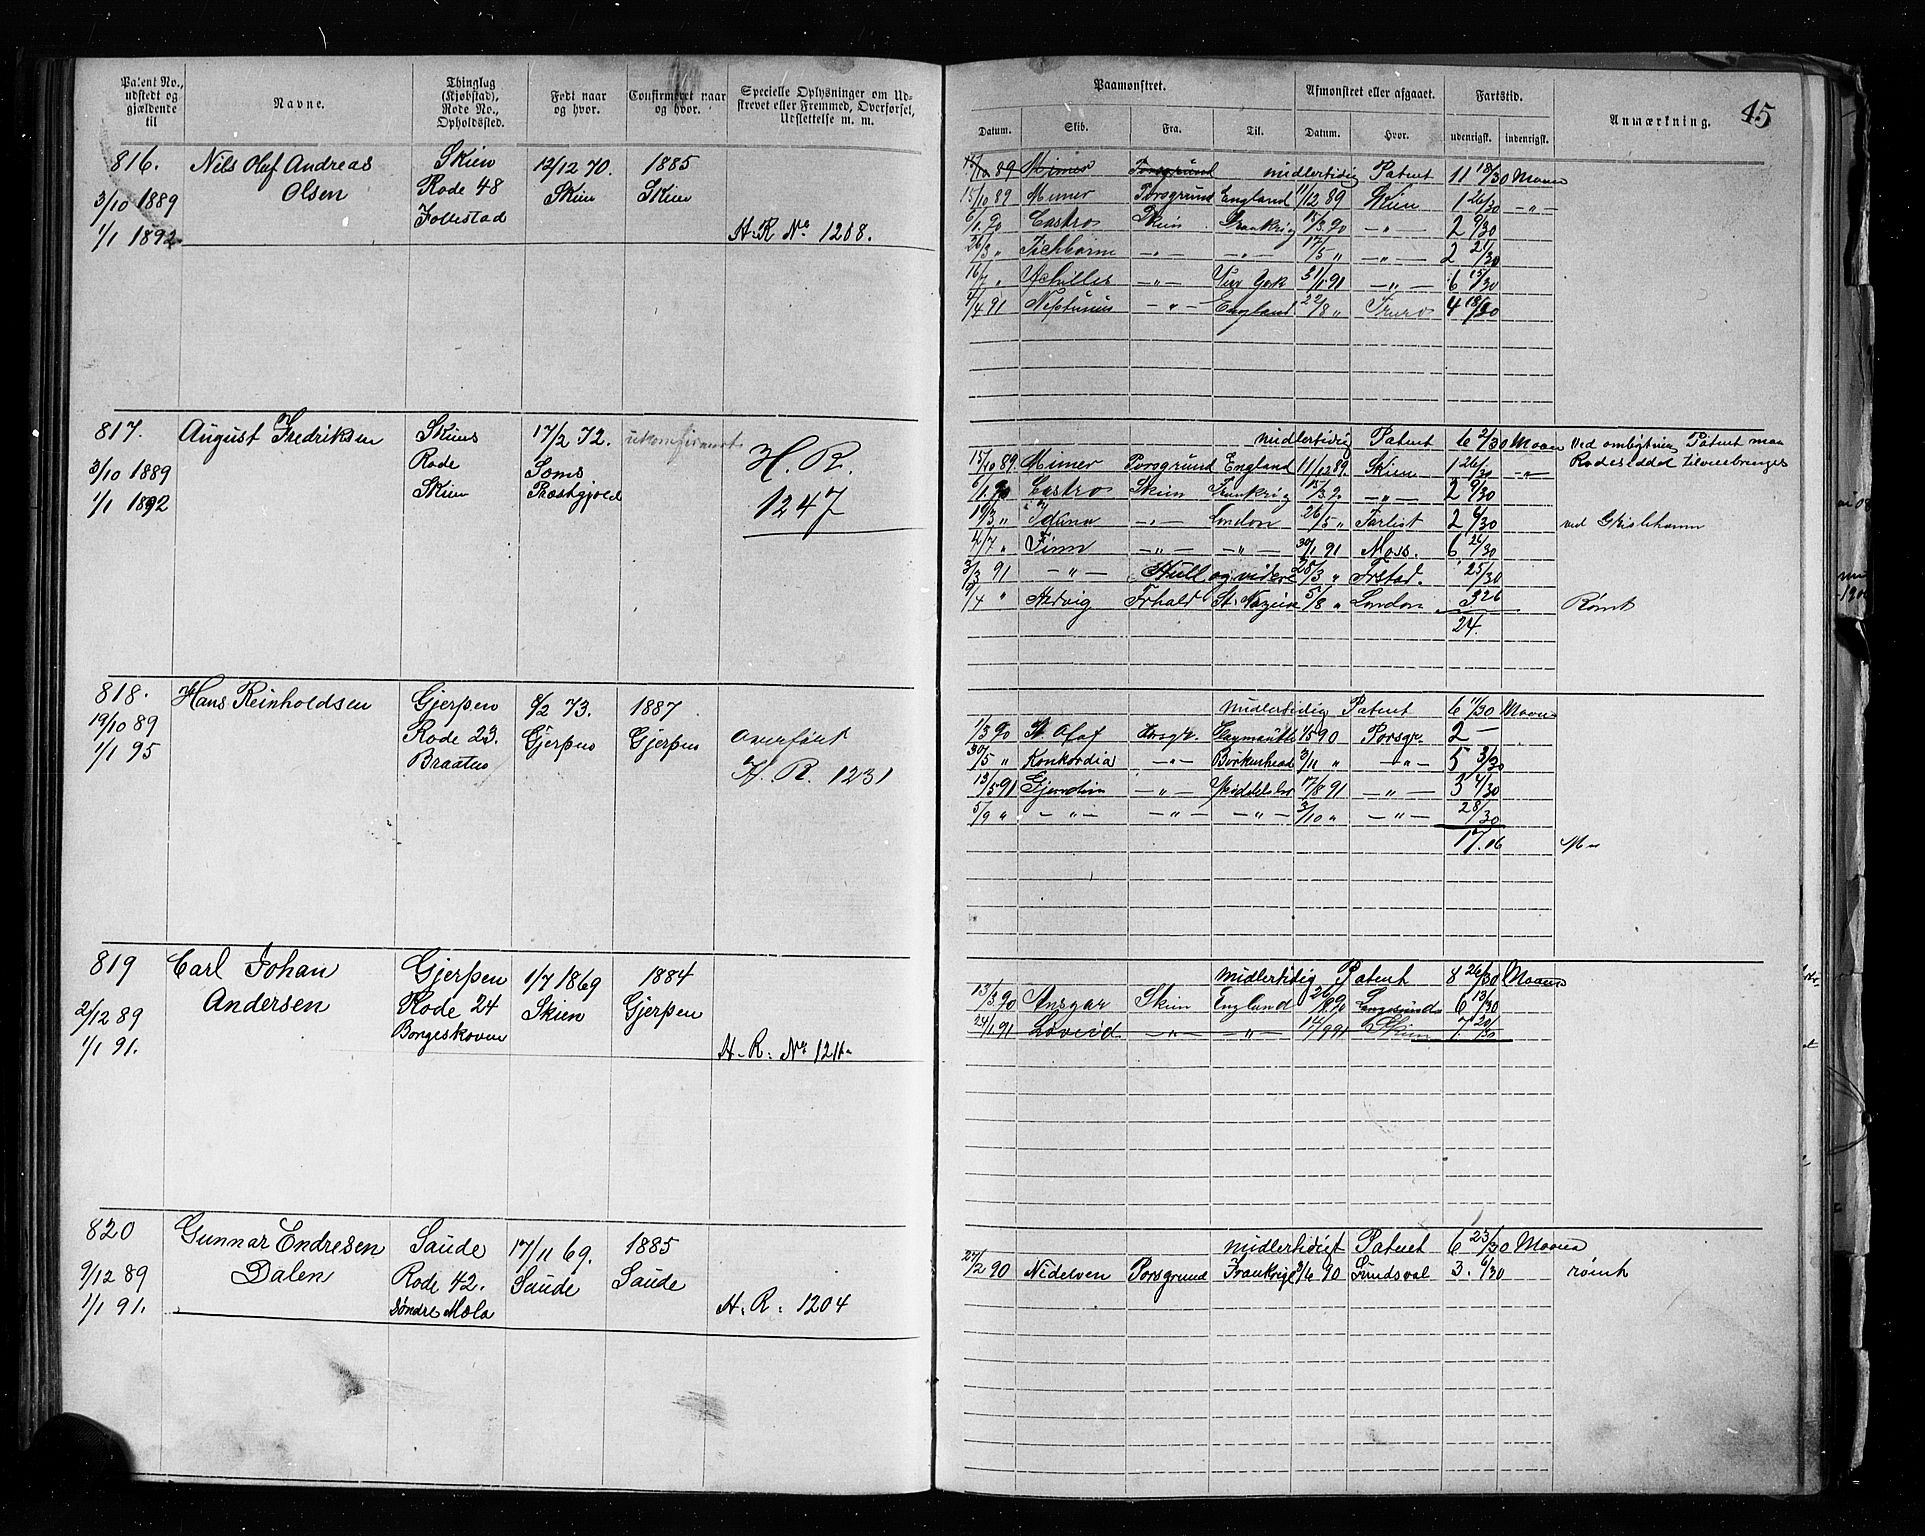 Patent No., udstedt og gjældende til
Navne.
Thinglag (Kjøbstad), Rode No., Opholdssted.
Født naar og hvor.
Confirmeret naar og hvor.
Specielle Oplysninger om Udskrevet eller Fremmed, Overførsel, Udslettelse m. m.
816. Nils Olaf Andreas Skien 12/12 70. 1885
Olsen Rode 48 Skien Skien
3/10 1889 Follestad
1/1 1892 H.R No 1288.
817. August Fredriksen Skiens 17/2 72. ukonfirmert
3/10 1889 Rode Soms H. R.
1/1 1892 Skien Præstgjeld 1247
818. Hans Reinholdsen Gjerpen 8/2 73. 1887
19/10 89 Rode 23. Gjerpen Gjerpen overført
1/1 95 Braaten H. R. 1231
819 Carl Johan Gjerpen 1/7 1869 1884
Andersen Rode 24 Skien Gjerpen
2/12 89 Borgeskoven
1/1 91. H.R. No 1211.
820 Gunnar Endresen Saude 17/11 69. 1885
9/12 89 Dalen Rode 42. Saude Saude
1/1 91. Søndre Mola H.R. 1204
45
Paamønstret.
Afmønstret eller afgaaet.
Fartstid.
Anmærkning.
Datum. Skib. Fra. Til. Datum. Hvor. udenrigst. indenrigst.
15/10 89 Mimer Porsgrund midlertidig Patent 11 18/30 Maaneder
15/10 89 Mimer Porsgrund England 11/12 89 Skien 1 26/30 — " —
6/1 90 Castro Skien Frankrig 15/3 90 — " — 2 9/30
26/3 " — " — — " — 17/5 " — " — 2 21/30
16/7 " Achilles — " — 31/1 91 — " — 6 15/30
4/4 91 Neptunus — " — England 22/8 " Truro 4 18/30
midlertidig Patent 6 2/30 Maan Ved ombytning Patent maa
15/10 89. Mimer Porsgrund England 11/12 89. Skien 1 26/30 — " — Rodeseddel tilveiebringes
6/1 90 Castro Skien Frankrig 15/3 90 — " — 2 9/30
19/3 " Iduna — " — London 26/5 " Forlist 2 6/30 ved
4/7 " Finn — " — — " — 30/1 91 Moss. 6 26/30
3/3 91 — " — Hull og videre 28/3 " Frstad. 25/30
10/4 " Hedvig Frhald St. Nazaire 5/8 " London 3 26 Rømt
24.
midlertidig Patent 6 11/30 Maan
1/3 90 St. Olaf Porsgr. 1/5 90 Porsgr. 2 —
30/5 " Konkordia — " — Birkenhead 3/11 " — " — 5 3/30
13/5 91 — " — Middelsbr 17/8 91 — " — 3 4/30
5/9 " — " — — " — — " — 3/10 " — " — 28/30
17.16
midlertidig Patent 8 26/30 Maan
13/3 90 Ansgar Skien England 26/9 90 Langesund 6 13/30
24/1 91 Løveid — " — — " — 14/9 91 Skien 7 20/30
midlertidigt Patent 6 23/30 Maan
27/2 90 Nidelven Porsgrund Frankrige 3/6 90 Sundsval 3. 6/30 rømt